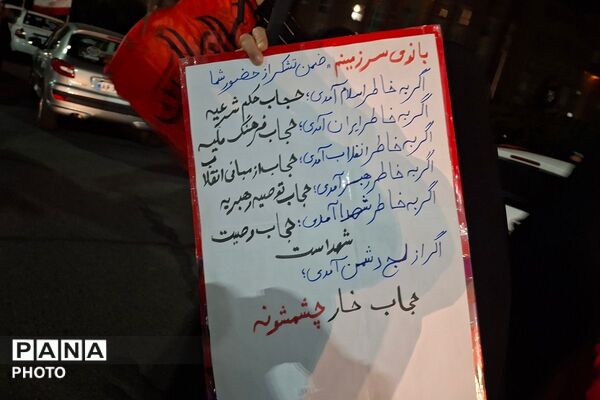 بانوی سرزمینم، ضمن تشکر از حضور شما
اگر به خاطر اسلام آمدی؛ حجاب حکم شرعیه
اگر به خاطر ایران آمدی؛ حجاب فرهنگ ملیه
اگر به خاطر انقلاب آمدی؛ حجاب از مبانی انقلابه
اگر به خاطر رهبر آمدی؛ حجاب توصیه رهبریه
اگر به خاطر شهدا آمدی؛ حجاب وصیت
شهداست
اگر از لج دشمن آمدی؛
حجاب خار چشمشونه
PANA
PHOTO